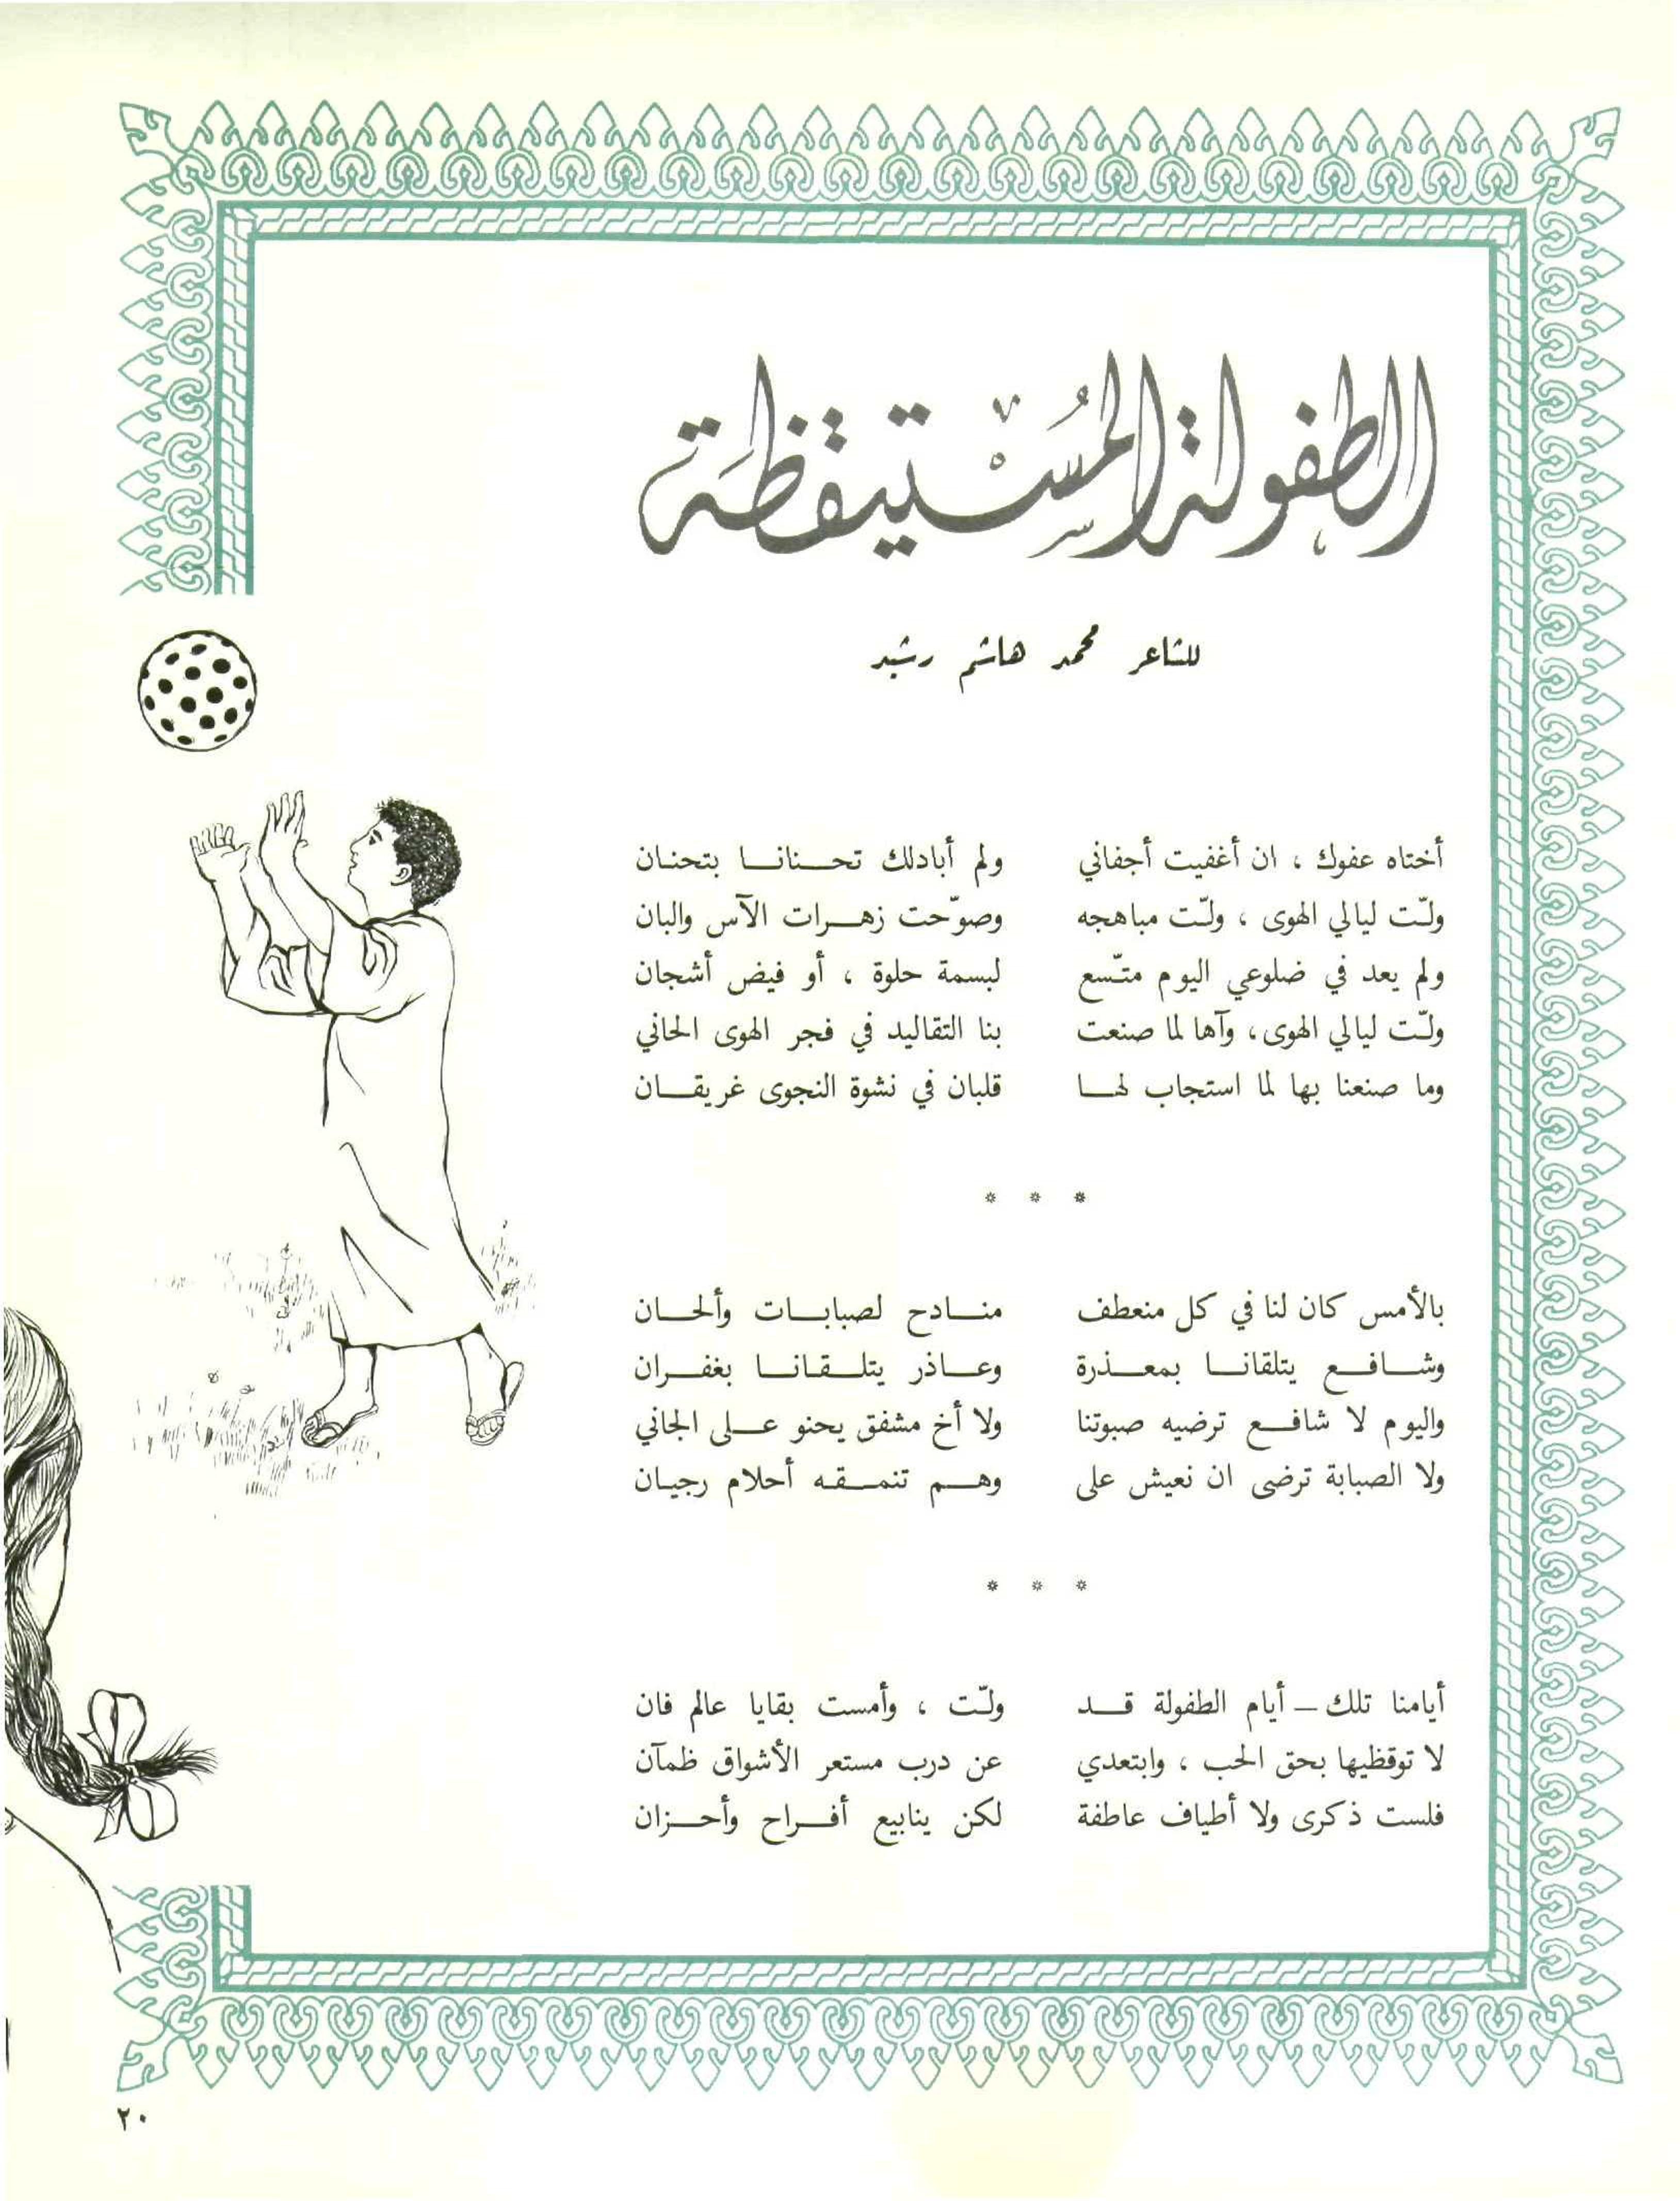 الطفولة المُسْتيقظَة
للشاعر محمد هاشم رشيد
أختاه عفوك ، ان أغفيت أجفاني ولم أبادلك تحنانا بتحنان
ولّت ليالي الهوى ، ولّت مباهجه وصوّحت زهرات الآس والبان
ولم يعد في ضلوعي اليوم متّسع لبسمة حلوة ، أو فيض أشجان
ولّت ليالي الهوى ، وآها لما صنعت بنا التقاليد في فجر الهوى الحاني
وما صنعنا بها لما استجاب لها قلبان في نشوة النجوى غريقان
* * *
بالأمس كان لنا في كل منعطف منادح لصبابات وألحان
وشافع يتلقانا بمعذرة وعاذر يتلقانا بغفران
واليوم لا شافع ترضيه صبوتنا ولا أخ مشفق يحنو على الجاني
ولا الصبابة ترضى ان نعيش على وهم تنمقه أحلام رجيان
* * *
أيامنا تلك – أيام الطفولة قد ولّت ، وأمست بقايا عالم فان
لا توقظيها بحق الحب ، وابتعدي عن درب مستعر الأشواق ظمآن
فلست ذكرى ولا أطياف عاطفة لكن ينابيع أفراح وأحزان
٢٠